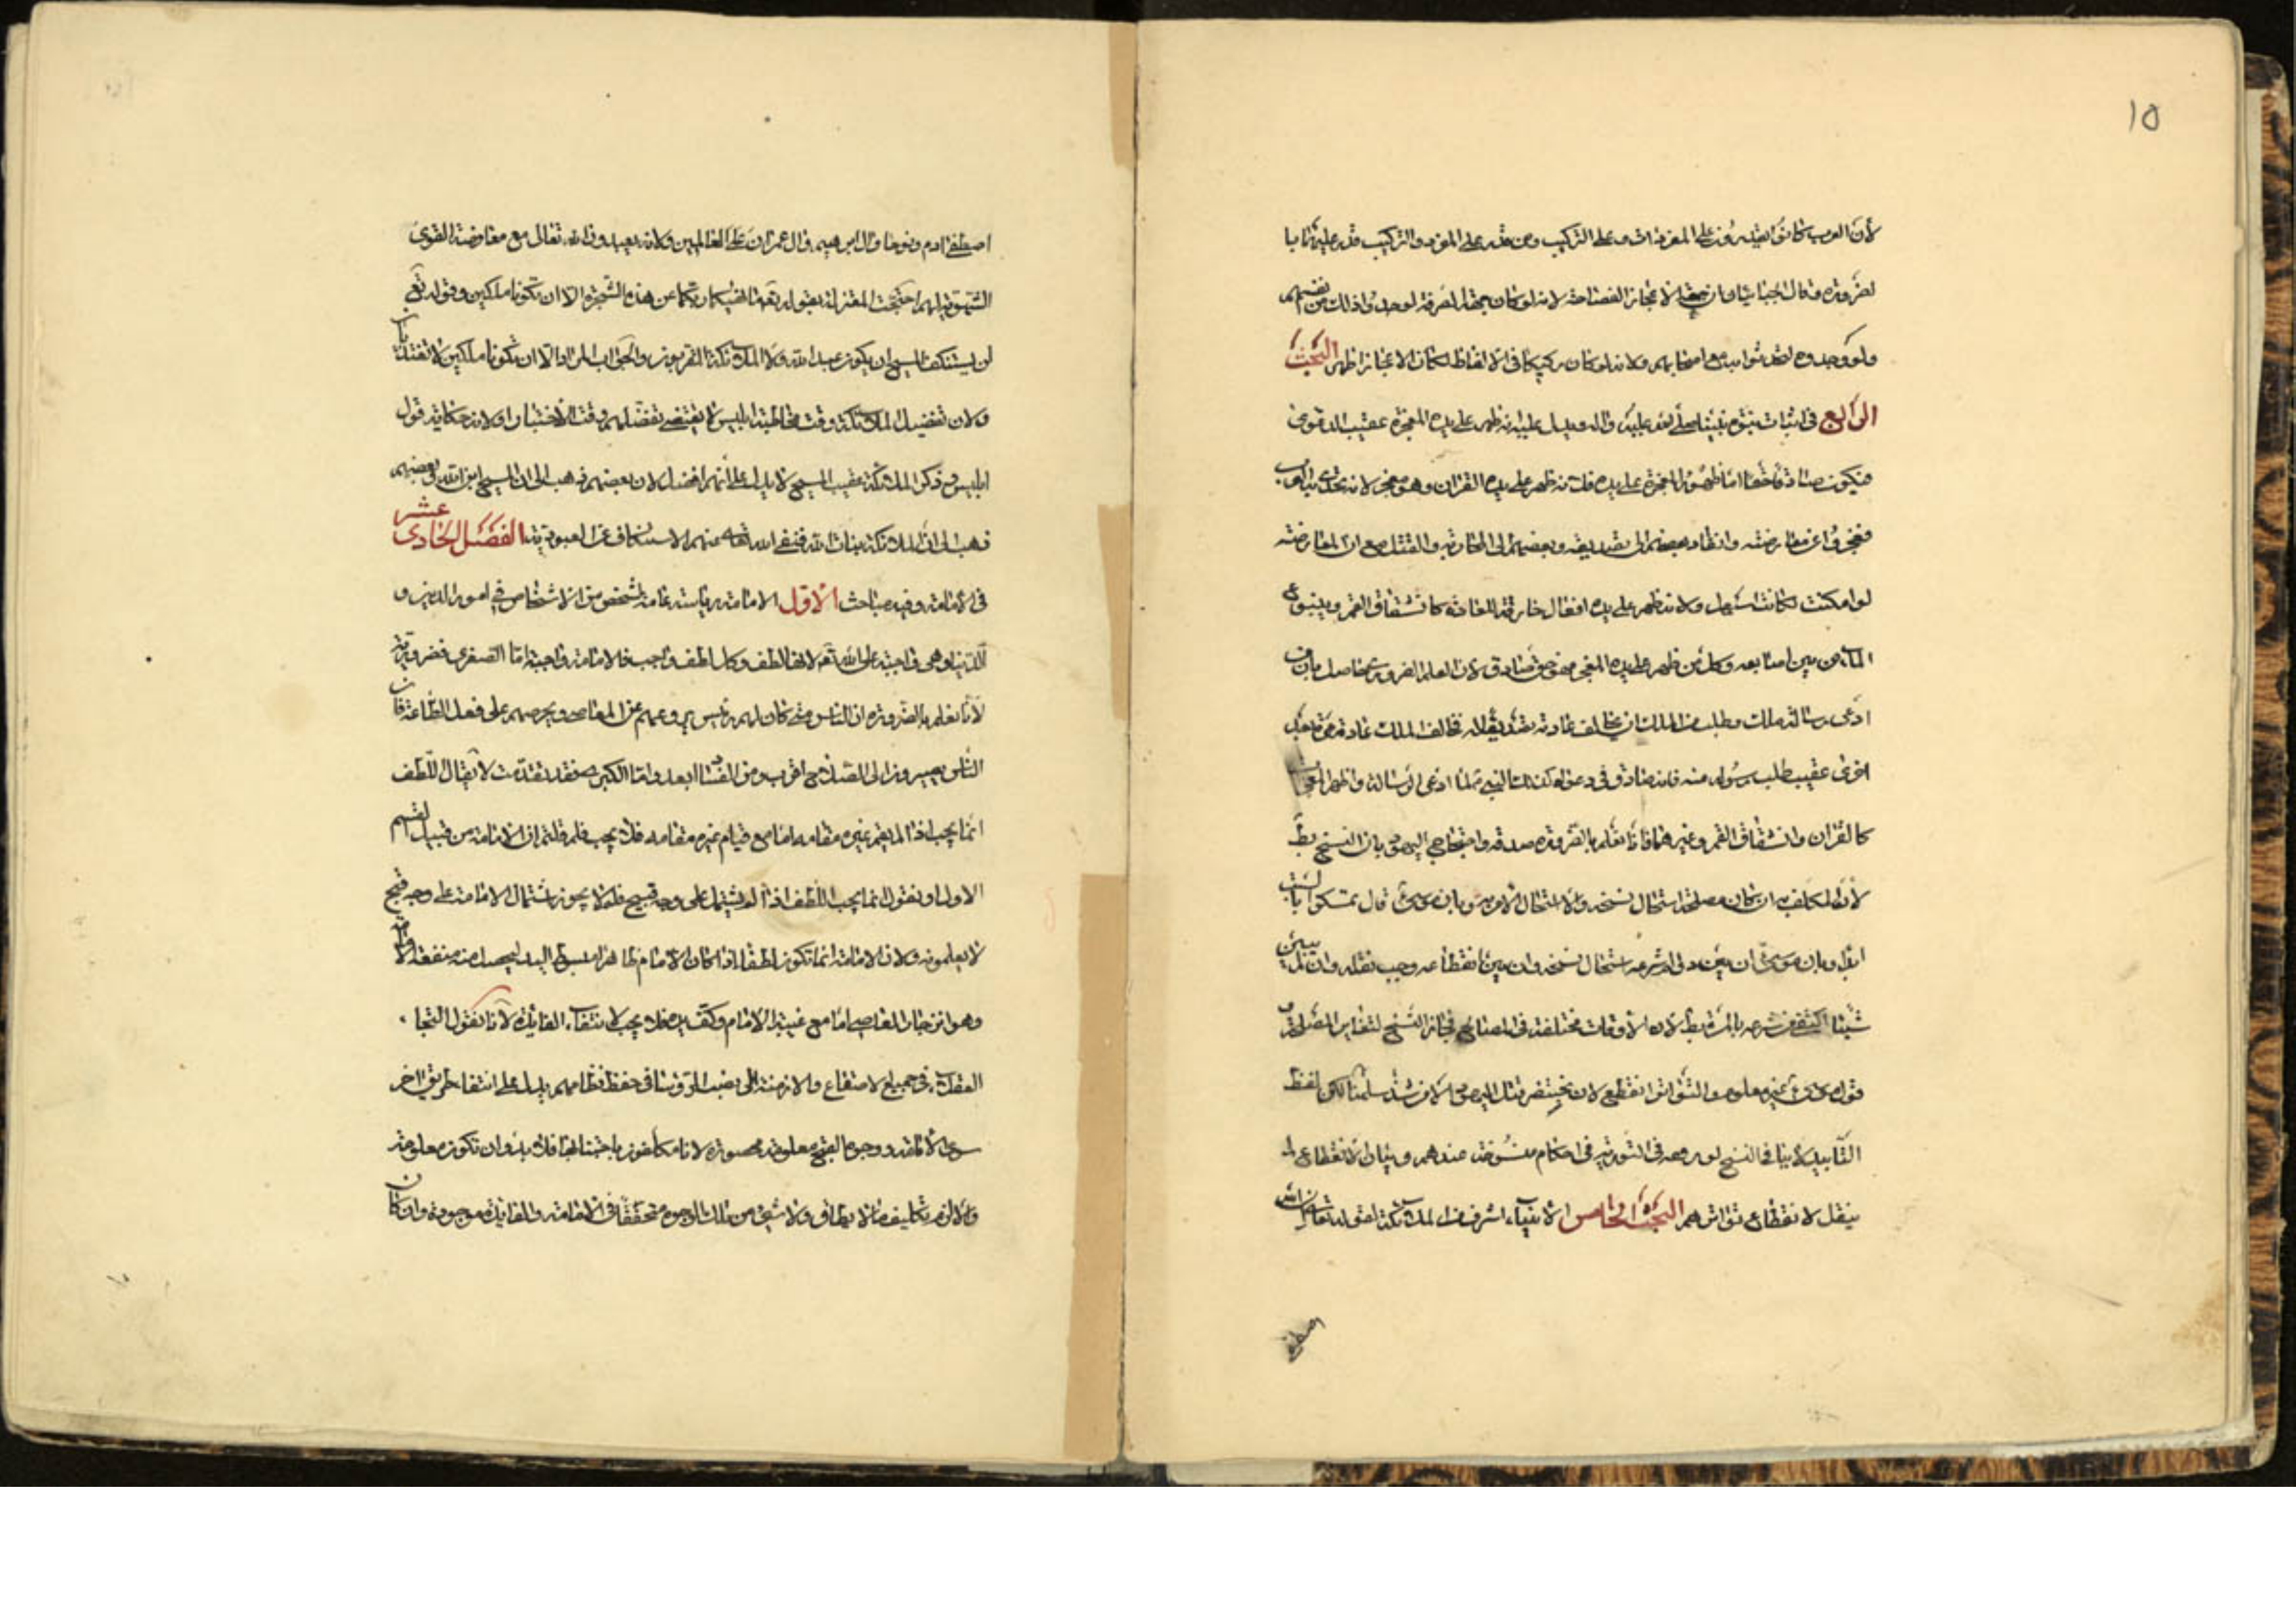 ١٥
لأن العرب كانوا يقدرون على المفردات وعلى التركيب ومن قدر على المفرد والتركيب قدر عليهما
لضرورة وقال الجبائيان جهة الاعجاز الفصاحة لانه لو كان جهة الصرفة لوجدوا ذلك من نفسهم
ولو وجدوه لتحدثوا به مع اصحابهم ولانه لو كان ركيكا في الالفاظ لكان الاعجاز اظهر البحث
الرابع في اثبات نبوة نبينا محمد عليه والدليل عليه انه ظهر على يده المعجزة عقيب الدعوى
فيكون صادقا حقا اما ظهور المعجزة على يده فلانه ظهر على يده القران وهو معجز لانه تحدى به العرب
فعجزوا عن معارضته وانقاد بعضهم الى تصديقه وبعضهم الى المحاربة والقتل مع ان المعارضة
لو امكنت لكانت اسهل ولانه ظهر على يده افعال خارقة للعادة كانشقاق القمر وينبوع
الماء من بين اصابعه وكل من ظهر على يده المعجز فهو صادق لان العلم الضروري حاصل بان من
ادعى رسالة ملك وطلب من الملك ان يخالف عادته تصديقا له فخالف الملك عادته مرة بعد
اخرى عقيب طلب رسوله منه فانه صادق في دعواه كذلك النبي لما ادعى الرسالة واظهر المعجزات
كالقران وانشقاق القمر وغيرهما فانا نعلم بالضرورة صدقه واحتجاج اليهود بان النسخ بط
لأن المكلف به ان كان مصلحة استحال نسخه والا استحال الامر به وبان موسى قال تمسكوا بالسبت
ابدا وبان موسى ان بين دوام شرعه استحال نسخه وان بين انقطاعه وجب نقله وان لم يبين
شيئا اكتفى من شرعه بالمرة بط لان الأوقات مختلفة في المصالح فجاز النسخ لتغاير المصلحة و
قول موسى غير معلوم والتواتر انقطع لان بختنصر قتل اليهود الا من شذ سلمنا لكن لفظ
التأبيد لا ينافي النسخ لوروده في التورية في احكام منسوخة عندهم وبيان الانقطاع لم
ينقل لانقطاع تواترهم البحث الخامس الانبياء اشرف من الملائكة لقوله تعالى ان الله
اصطفى
اصطفى ادم ونوحا وال ابرهيم وال عمران على العالمين ولانه يعبدون الله تعالى مع معارضة القوى
الشهوية لهم احتجت المعتزلة بقوله تعه ما نهيكما ربكما عن هذه الشجرة الا ان تكونا ملكين وقوله تع
لن يستنكف المسيح ان يكون عبدا لله ولا الملائكة المقربون والجواب المراد الا ان تكونا ملكين لا تغتذيا
ولان تفضيل الملائكة وقت مخاطبة ابليس لا يقتضى تفضلهم وقت الاختيار ولانه حكاية قول
ابليس وذكر الملائكة عقيب المسيح لا يدل على أنهم افضل لان بعضهم ذهب الى ان المسيح ابن الله وبعضهم
ذهب الى ان الملائكة بنات الله فنفى الله تعه عنهم الاستنكاف عن العبودية الفصل الحادى عشر
في الامامة وفيه مباحث الاول الامامة رياسة عامة لشخص من الاشخاص في امور الدين و
الدنيا وهى واجبة على الله تعه لانها لطف وكل لطف واجب فالامامة واجبة اما الصغرى فضرورية
لأنا نعلم بالضرورة ان الناس متى كان لهم رئيس يردعهم عن المعاصى ويحرصهم على فعل الطاعة فان
الناس يصيرون الى الصلاح اقرب ومن الفساد ابعد واما الكبرى فقد تقدمت لا يقال اللطف
انما يجب اذا لم يقم غيره مقامه اما مع قيام غيره مقامه فلا يجب فلم قلتم ان الامامة من قبيل القسم
الاول او نقول انما يجب اللطف اذا لم يشتمل على وجه قبيح فلم لا يجوز اشتمال الامامة على وجه قبح
لا يعلمونه ولان الامامة انما تكون لطفا اذا كان الامام ظاهرا مبسوط اليد ليحصل منه منفعة الامامة
وهو انزجار العاصي اما مع غيبة الامام وكف يده فلا يجب لانتفاء الفائدة لأنا نقول التجاء
العقلاء في جميع الاصقاع والازمنة الى نصب الرؤسا في حفظ نظامهم يدل على انتفاء طريق اخر
سوى الامامة ووجوه القبح معلومة محصورة لانا مكلفون باجتنابها فلا بد وان تكون معلومة
والا لزم تكليف ما لا يطاق ولا شيء من تلك الوجوه متحققا في الامامة والفايدة موجودة وان كان